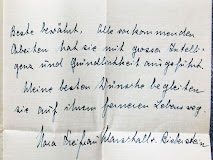 Beste bewährt. Alle vorkommenden
Arbeiten hat sie mit grosser Intelli-
genz und Gründlichkeit ausgeführt.
Meine besten Wünsche begleiten
sie auf ihrem ferneren Lebensweg.
Marschall-Bieberstein